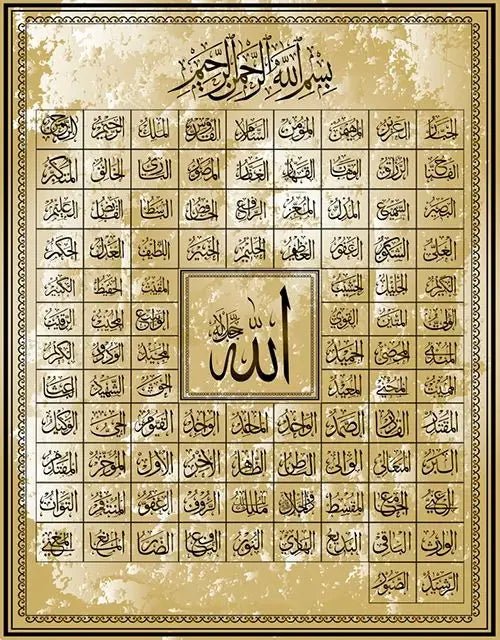 بسم الله الرحمن الرحيم
الرحمن الرحيم الملك القدوس السلام المؤمن المهيمن العزيز الجبار
المتكبر الخالق البارئ المصور الغفار القهار الوهاب الرزاق الفتاح
العليم القابض الباسط الخافض الرافع المعز المذل السميع البصير
الحكم العدل اللطيف الخبير الحليم العظيم الغفور الشكور العلي
الكبير الحفيظ المقيت الحسيب الجليل الكريم
الرقيب المجيب الواسع القوي المتين الولي
الله جل جلاله
الحكيم الودود المجيد الحميد المحصي المبدئ
الباعث الشهيد الحق المعيد المحيي المميت
الوكيل الحي القيوم الواجد الماجد الواحد الصمد القادر المقتدر
المقدم المؤخر الأول الآخر الظاهر الباطن الوالي المتعالي البر
التواب المنتقم العفو الرؤوف مالك الملك ذو الجلال المقسط الجامع الغني
المغني المانع الضار النافع النور الهادي البديع الباقي الوارث
الرشيد الصبور